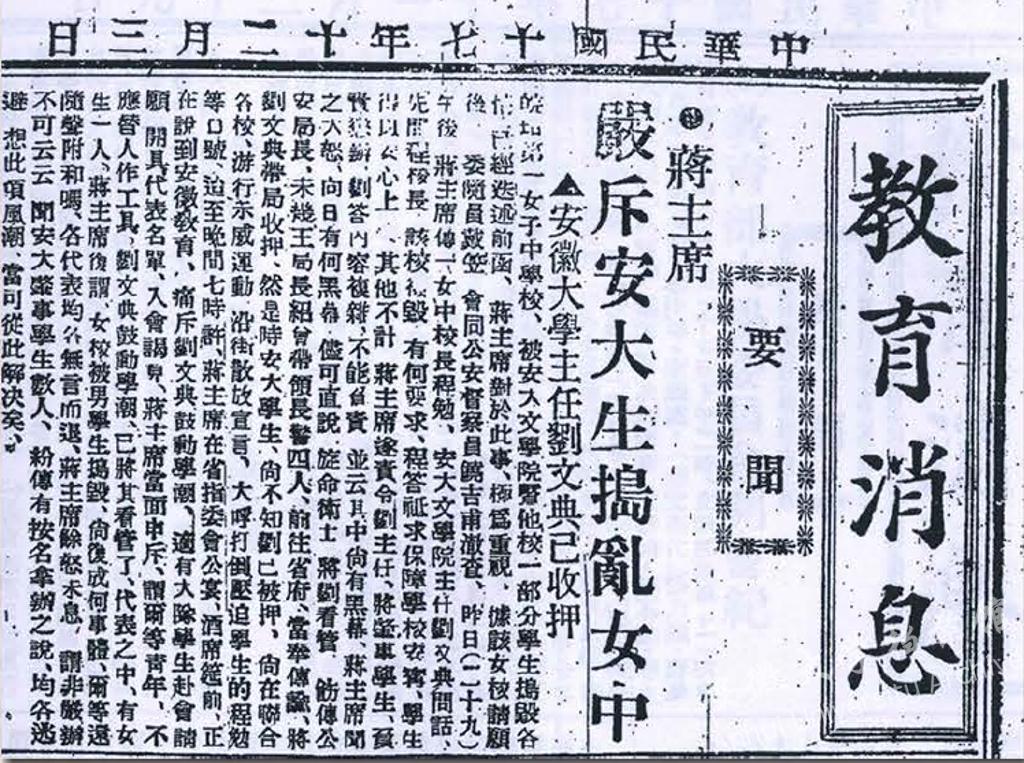 中華民國十七年十二月三日
教育消息
要聞
蔣主席
嚴斥安大生搗亂女中
▲安徽大學主任劉文典已收押
皖垣第一女子中學校、被安大文學院暨他校一部分學生搗毀各
情、已經迭述前函、蔣主席對於此事、極爲重視、據該女校請願
後、委隨員戴笠、會同公安督察員饒吉甫澈查、昨日(二十九)
午後、蔣主席傳一女中校長程勉、安大文學院主任劉文典問話、
先問程校長、該校被毀、有何要求、程答祗求保障學校安寧、學生
得以安心上、其他不計、蔣主席遂責令劉主任、將肇事學生、負
責懲辦、劉答內容複雜、不能負責、並云其中尚有黑幕、蔣主席聞
之大怒、向曰有何黑幕、儘可直說、旋命衛士、將劉看管、飭傳公
安局長、未幾王局長紹曾帶領長警四人、前往省府、當奉傳諭、將
劉文典帶局收押、然是時安大學生、尚不知劉已被押、尚在聯合
各校、游行示威運動、沿街散放宣言、大呼打倒壓迫學生的程勉
等口號、迨至晚間七時許、蔣主席在省指委會公宴、酒席筵前、正
在說到安徽教育、痛斥劉文典鼓動學潮、適有大隊學生赴會請
願、開具代表名單、入會謁見、蔣主席當面申斥、謂爾等青年、不
應替人作工具、劉文典鼓動學潮、已將其看管了、代表之中、有女
生一人、蔣主席復謂、女校被男學生搗毀、尚復成何事體、爾等還
隨聲附和嗎、各代表均各無言而退、蔣主席餘怒未息、謂非嚴辦
不可云云、聞安大肇事學生數人、紛傳有按名拿辦之說、均各逃
避、想此項風潮、當可從此解決矣、